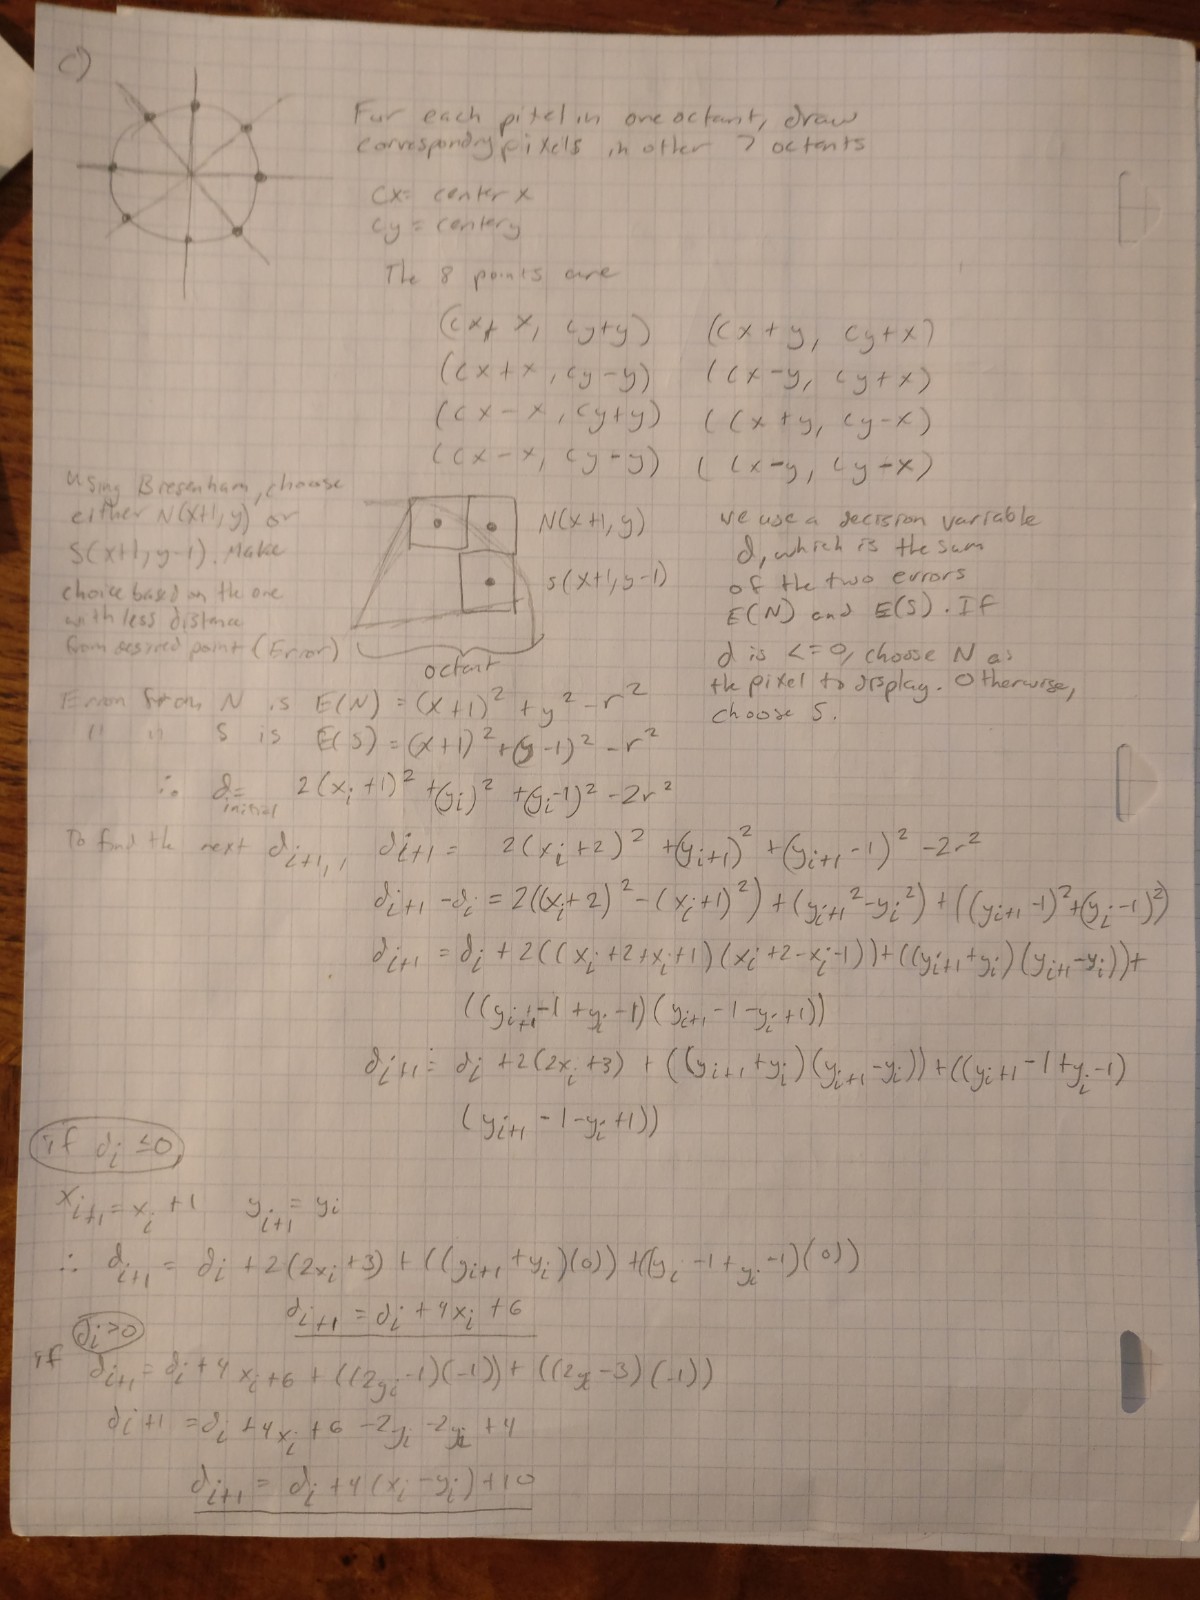 c)
For each pixel in one octant, draw
corresponding pixels in other 7 octants
cx = center x
cy = center y
The 8 points are
(cx + x, cy+y) (cx + y, cy+x)
(cx+x, cy-y) (cx-y, cy+x)
(cx-x, cy+y) (cx+y, cy-x)
(cx-x, cy-y) (cx-y, cy-x)
Using Bresenham, choose
either N(x+1, y) or
S(x+1, y-1). Make
choice based on the one
with less distance
from desired point (Error)
N(x+1, y)
S(x+1, y-1)
octant
we use a decision variable
d, which is the sum
of the two errors
E(N) and E(S). If
d is <=0, choose N as
the pixel to display. Otherwise,
choose S.
Error from N is E(N) = (x+1)² + y² - r²
" " S is E(S) = (x+1)² + (y-1)² - r²
∴ d_initial = 2(x_i+1)² + (y_i)² + (y_i-1)² - 2r²
To find the next d_{i+1}, d_{i+1} = 2(x_i+2)² + (y_{i+1})² + (y_{i+1}-1)² - 2r²
d_{i+1} - d_i = 2((x_i+2)² - (x_i+1)²) + (y_{i+1}² - y_i²) + ((y_{i+1}-1)² + (y_i-1)²)
d_{i+1} = d_i + 2((x_i+2+x_i+1)(x_i+2-x_i-1)) + ((y_{i+1}+y_i)(y_{i+1}-y_i)) +
((y_{i+1}-1+y_i-1)(y_{i+1}-1-y_i+1))
d_{i+1} = d_i + 2(2x_i+3) + ((y_{i+1}+y_i)(y_{i+1}-y_i)) + ((y_{i+1}-1+y_i-1)
(y_{i+1}-1-y_i+1))
if d_i ≤0
x_{i+1} = x_i+1 y_{i+1} = y_i
∴ d_{i+1} = d_i + 2(2x_i+3) + ((y_{i+1}+y_i)(0)) + ((y_i-1+y_i-1)(0))
d_{i+1} = d_i + 4x_i + 6
if d_i>0
d_{i+1} = d_i + 4x_i+6 + ((2y_i-1)(-1)) + ((2y_i-3)(-1))
d_{i+1} = d_i + 4x_i + 6 - 2y_i - 2y_i + 4
d_{i+1} = d_i + 4(x_i - y_i) + 10